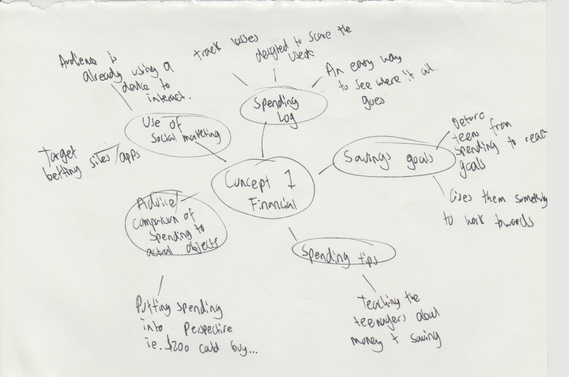 Audience is
already using a
device to
interact.
track losses
designed to scare the
users
An easy way
to see where it all
goes
Spending
Log
Use of
Social marketing
Target
betting sites/apps
Savings goals
Deture
teens from
spending to reach
goals
Gives them something
to work towards
Concept 1
Financial
Advice/
comparison of
spending to
actual objects
Spending tips
Putting spending
into Perspective
ie. $200 could buy...
Teaching the
teenagers about
money + saving